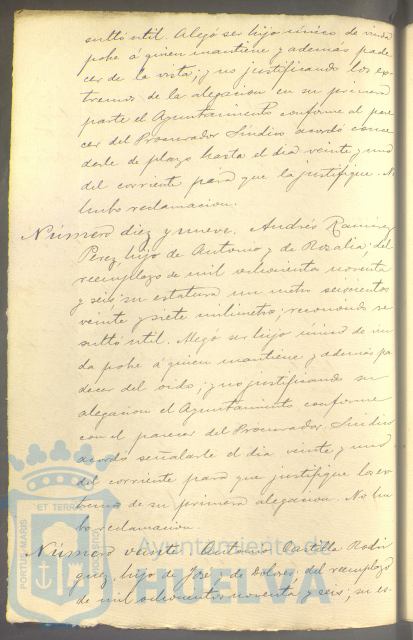 sultó util. Alegó ser hijo único de viuda
pobre á quien mantiene y además pade
cer de la vista; y no justificando los ex-
tremos de la alegacion en su primera
parte el Ayuntamiento conforme al pare
cer del Procurador Sindico acordó conce
derle de plazo hasta el dia veinte y uno
del corriente para que la justifique. No
hubo reclamacion.
Número diez y nueve. Andrés Ramirez
Perez, hijo de Antonio y de Rosalia, del
reemplazo de mil ochocientos noventa
y seis; su estatura un metro seiscientos
veinte y siete milimetros; reconocido re
sultó util. Alegó ser hijo único de viu
da pobre á quien mantiene y además pa
decer del oido; y no justificando su
alegacion el Ayuntamiento conforme
con el parecer del Procurador Sindico
acordó señalarle el dia veinte y uno
del corriente para que justifique los ex
tremos de su primera alegacion. No hu
bo reclamacion
Número veinte Antonio Castilla Rodri
guez, hijo de José y de Dolores; del reemplazo
de mil ochocientos noventa y seis; su es-
Ayuntamiento de
HUELVA
PORTUS MARIS
ET TERRÆ
CUSTODIA